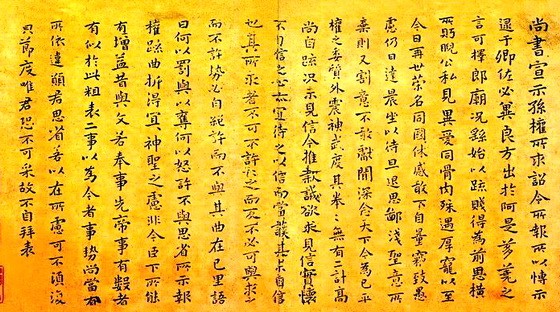 尚書宣示孫權所求詔令所報所以博示
逮于卿佐必冀良方出於阿是芻蕘之
言可擇郎廟況繇始以疏賤得為前思橫
所盻睨公私見異愛同骨肉殊遇厚寵以至
今日再世榮名同國休慼敢不自量竊致愚
慮仍日達晨坐以待旦退思鄙淺聖意所
棄則又割意不敢獻聞深念天下今為已平
權之委質外震神武度其拳〻無有二計高
尚自疏況未見信今推款誠欲求見信實懷
不自信之心亦宜待之以信而當護其未自信
也其所求者不可不許〻之而反不必可與求之
而不許勢必自絕許而不與其曲在己里語
曰何以罰與以奪何以怒許不與思省所示報
權疏曲折得宜〻神聖之慮非今臣下所能
有增益昔與文若奉事先帝事有數者
有似於此粗表二事以為今者事勢尚當有
所依違願君思省若以在所慮可不須復
貌節度唯君恐不可采故不自拜表